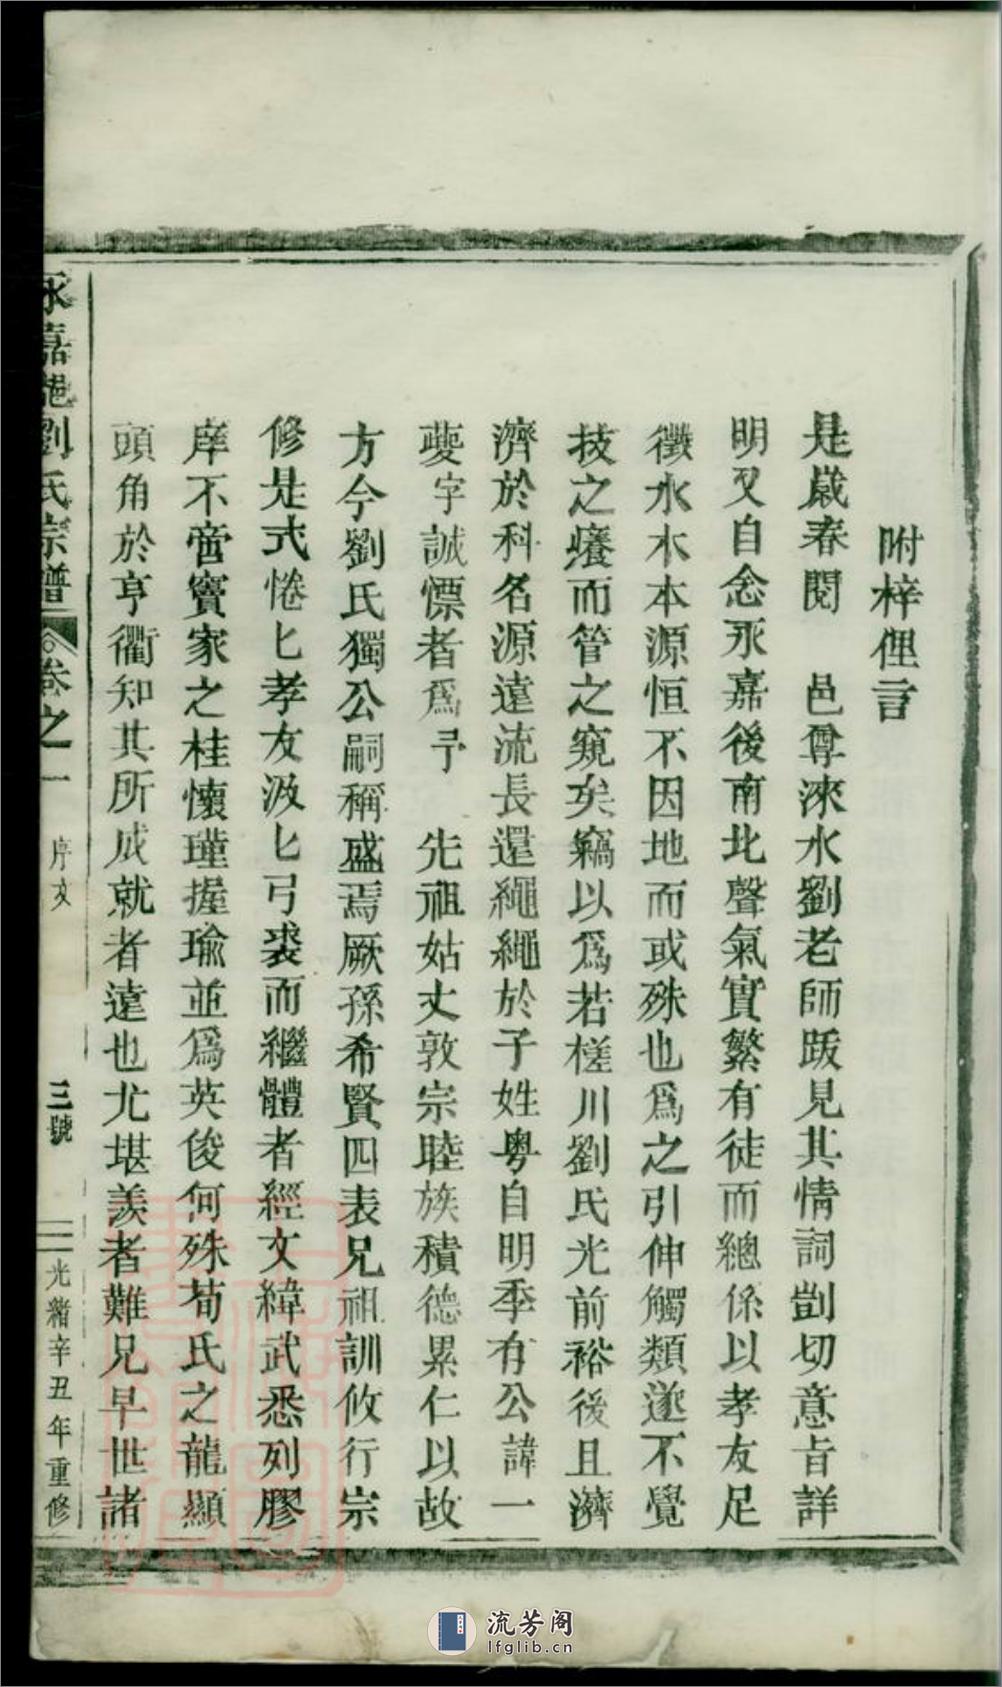 附梓俚言
是歲春閱　邑尊淶水劉老師跋見其情詞剴切意旨詳
明又自念永嘉後南北聲氣實繁有徒而總係以孝友足
徵水木本源恒不因地而或殊也爲之引伸觸類遂不覺
技之癢而管之窺矣竊以爲若槎川劉氏光前裕後且濟
濟於科名源遠流長還繩繩於子姓粤自明季有公諱一
夔字誠慄者爲予　先祖姑丈敦宗睦族積德累仁以故
方今劉氏獨公嗣稱盛焉厥孫希賢四表兄祖訓攸行宗
修是式惓匕孝友汲匕弓裘而繼體者經文緯武悉列膠
庠不啻竇家之桂懷瑾握瑜並爲英俊何殊荀氏之龍顯
頭角於亨衢知其所成就者遠也尤堪羨者難兄早世諸
永嘉 劉氏宗譜 卷之一 序文 三號 光緒辛丑年重修
流芳阁
lfglib.cn